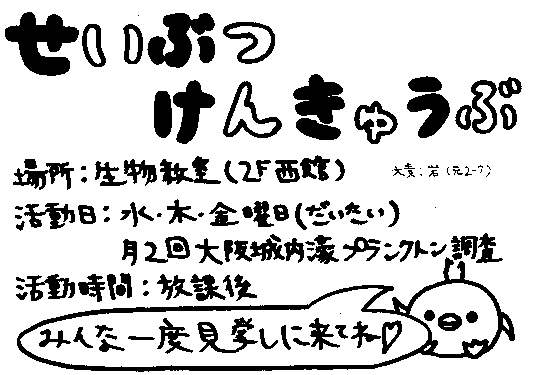 せいぶつ
けんきゅうぶ
場所：生物教室(2F西館)
活動日：水・木・金曜日(だいたい)
月2回大阪城内濠プランクトン調査
活動時間：放課後
みんな一度見学しに来てね♡